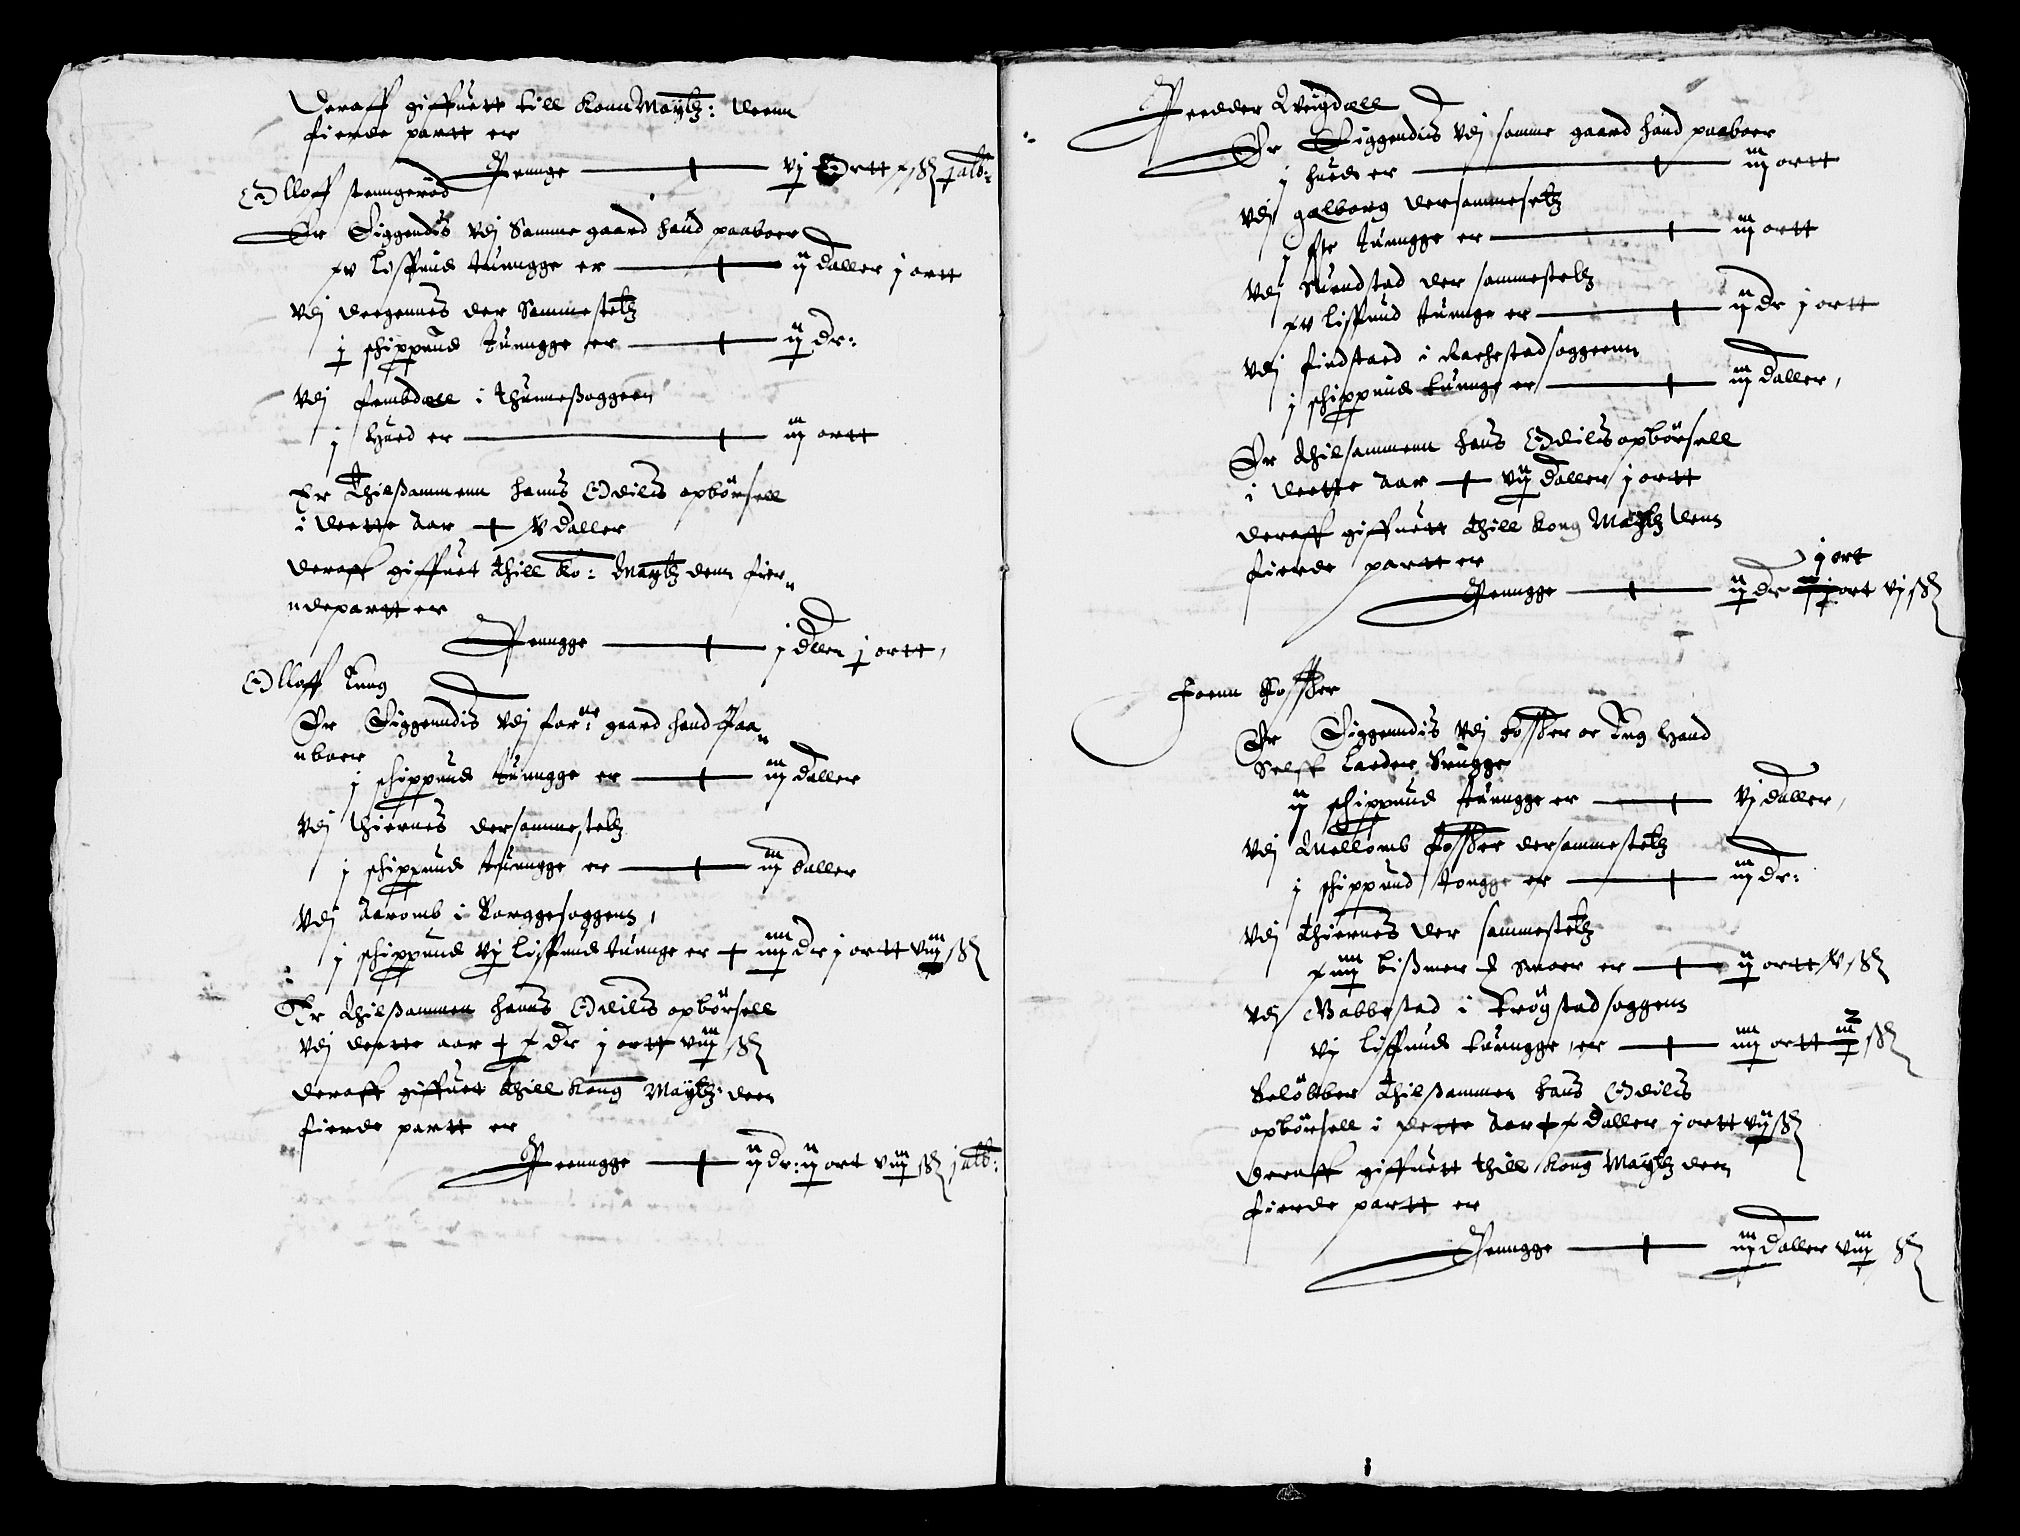 Deraff giffuett till Konn Maytz: denn
fierde partt er
Pennge — vj Ortt x ß j alb:
Olloff stenngerød
Er Liggendis vdj Samme gaard hand paaboer
xv Lispund tunngge er — ij daller j ortt
vdj deegennes der Sammestetz
j schippund tunngge er — ij dr:
vdj fembdall i Thunneßoggenn
j Hued er — iij ortt
Er Thilsammenn hanns Odills opbørsell
i dette Aar — v daller
deraff giffuet thill Ko: Maytz denn fier
ndepartt er
Penngge — j daller j ortt,
Olloff Kneg
Er Liggenndis vdj forne: gaard hand paa
nboer
j schippund tunngge er — iij daller
vdj thiernes dersammestetz
j schippund tunngge er — iij daller
vdj Aaromb i Borggesoggenn,
j schippund vj Lispund tunnge er — iiij dr j ortt viij ß
Er thilsammen hanns Odills opbørsell
vdj dette aar — x dr j ortt viij ß
deraff giffuet thill Kong Maytz: den
fierde partt er
Peenngge — ij dr: ij ort viij ß j alb:
Peedder Quegdall
Er Liggendis vdj samme gaard hand paaboer
j hueds er — iij ortt
vdj galborg dersammesetz
j fr tunngge er — iij ortt
vdj Suendstad der sammestetz
xv Lispund tunnge er — ij dr j ortt
vdj findstaed i Rachestadsoggenn
j schippund tunnge er — iij daller,
Er thilsammenn hans Odills opbørsell
i deette Aar — vij daller j ortt
deraff giffuett thill Kong Maytz denn
fierde partt er
j ort
Penngge — ij dr ort vj ß
Joenn Fossser
Er Liggenndis vdj fossser or Kneg Hand
Selff Laeder Brugge
ij schippund tunngge er — vj daller,
vdj Mellomb fossser dersammestetz
j schippund tongge er — iij dr:
vdj Thiernes der sammestetz
xiiij bißmer ₰ Smoer er — ij ortt xv ß
vdj Wabbestad i Krøgstadsoggenn
vj Lispund tunngge er — iiij ortt ß
Beløbber Thilsammen hans Odills
opbørsell i dette Aar — x daller j ortt vij ß
deraff giffuett thill Kong Maytz den
fierde partt er
Penngge — iij daller viij ß